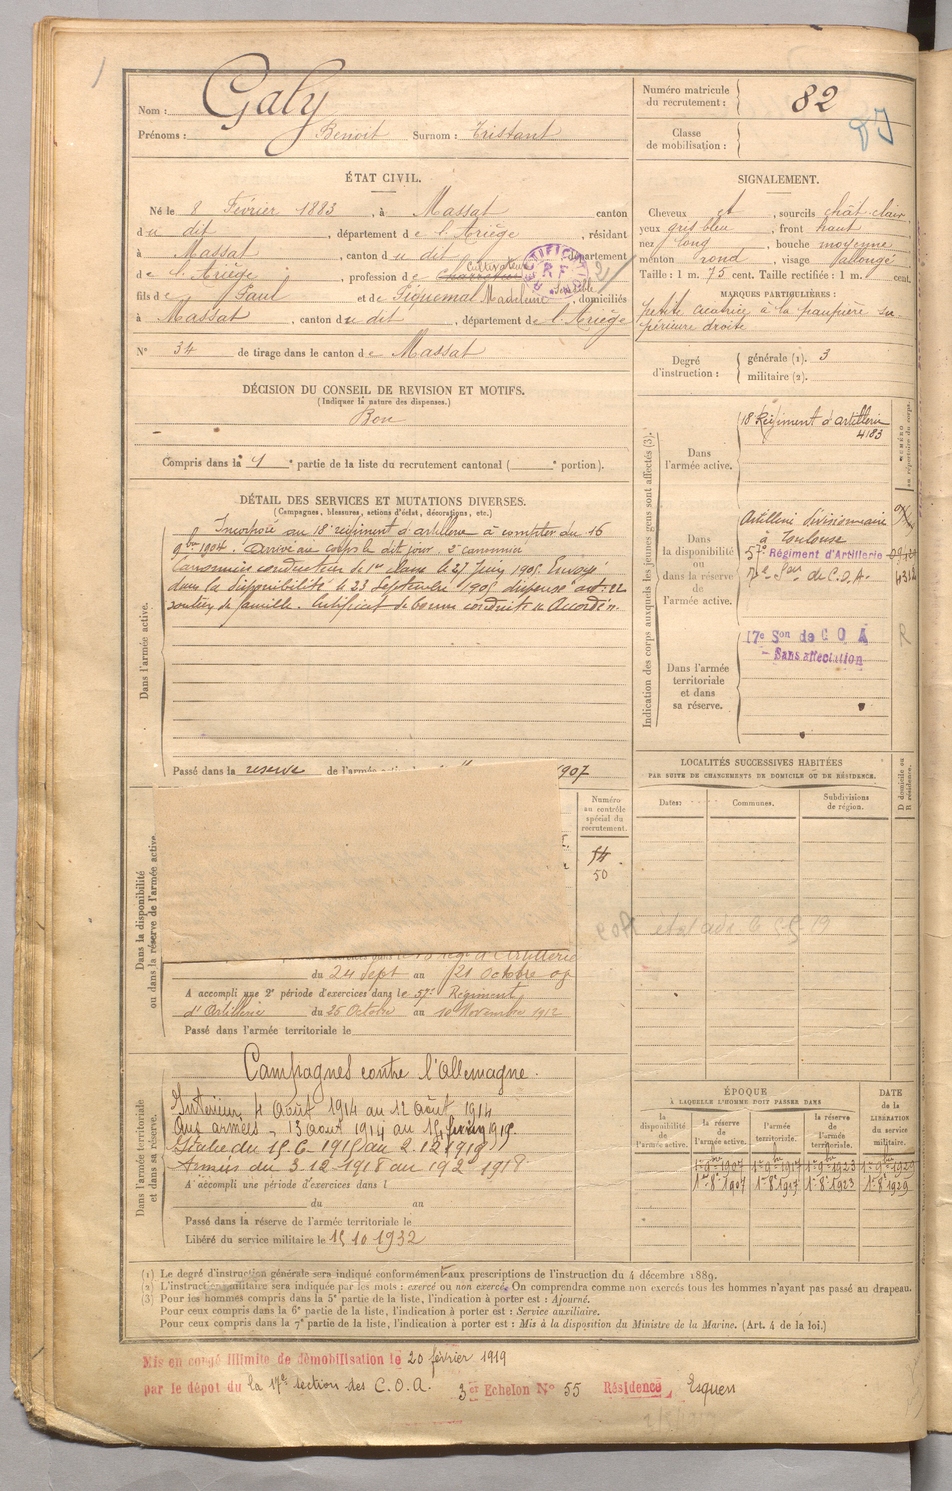 Nom : Galy
Prénoms : Benoit Surnom : Tristant
Numéro matricule du recrutement : 82
Classe de mobilisation :
ÉTAT CIVIL.
Né le 8 Février 1883, à Massat canton
du dit, département de l'Ariège, résidant
à Massat, canton du dit département
de l'Ariège, profession de Cultivateur
fils de Paul et de Piquemal Madeleine, domiciliés
à Massat, canton du dit, département de l'Ariège
N° 34 de tirage dans le canton de Massat
SIGNALEMENT.
Cheveux et, sourcils chât-clair
yeux gris bleu, front haut
nez long, bouche moyenne
menton rond, visage allongé
Taille : 1 m. 75 cent. Taille rectifiée : 1 m. cent.
MARQUES PARTICULIÈRES :
petite cicatrice à la paupière su-
périeure droite
Degré d'instruction : générale (1). 3
militaire (2).
DÉCISION DU CONSEIL DE REVISION ET MOTIFS.
(Indiquer la nature des dispenses.)
Bon
Compris dans la 1 e partie de la liste du recrutement cantonal ( e portion).
DÉTAIL DES SERVICES ET MUTATIONS DIVERSES.
(Campagnes, blessures, actions d'éclat, décorations, etc.)
Dans l'armée active.
Incorporé au 18e régiment d'artillerie à compter du 16
9bre 1904. Arrivé au corps le dit jour. 2e canonnier
Canonnier conducteur de 1re classe le 27 Juin 1905. Envoyé
dans la disponibilité le 23 Septembre 1905 dispensé art: 22
soutien de famille. Certificat de bonne conduite Accordé.
Passé dans la reserve de l'armée 1907
Indication des corps auxquels les jeunes gens sont affectés (3).
NUMÉRO au répertoire du corps.
Dans l'armée active.
18 Régiment d'artillerie
4183
Dans la disponibilité ou dans la réserve de l'armée active.
Artillerie divisionnaire
à Toulouse
57e Régiment d'Artillerie
17e Son de C.O.A.
Dans l'armée territoriale et dans sa réserve.
17e Son de COA
- Sans affectation
LOCALITÉS SUCCESSIVES HABITÉES
PAR SUITE DE CHANGEMENTS DE DOMICILE OU DE RÉSIDENCE.
Dates: Communes. Subdivisions de région.
D domicile ou R résidence.
Dans la disponibilité ou dans la réserve de l'armée active.
Numéro au contrôle spécial du recrutement.
54
50
d'Artillerie
du 24 Sept au 21 Octobre 08
A accompli une 2e période d'exercices dans le 57e Régiment
d'Artillerie du 25 Octobre au 10 Novembre 1912
Passé dans l'armée territoriale le
Dans l'armée territoriale et dans sa réserve.
Campagnes contre l'Allemagne.
Intérieur, 4 Août 1914 au 12 août 1914
Aux armées, 13 août 1914 au
Italie du 15-6-1918 au 2.12.1918
Armées du 3-12-1918 au 19 2 1919
A accompli une période d'exercices dans l
du au
Passé dans la réserve de l'armée territoriale le
Libéré du service militaire le 15 10 1932
ÉPOQUE
À LAQUELLE L'HOMME DOIT PASSER DANS
la disponibilité de l'armée active.
la réserve de l'armée active.
l'armée territoriale.
la réserve de l'armée territoriale.
DATE de la LIBÉRATION du service militaire.
1er 9bre 1907 1er 9bre 1917 1er 9bre 1923 1er 9bre 1929
1er 8e 1907 1er 8e 1917 1er 8e 1923 1er 8e 1929
(1) Le degré d'instruction générale sera indiqué conformément aux prescriptions de l'instruction du 4 décembre 1889.
(2) L'instruction militaire sera indiquée par les mots : exercé ou non exercé. On comprendra comme non exercés tous les hommes n'ayant pas passé au drapeau.
(3) Pour les hommes compris dans la 5e partie de la liste, l'indication à porter est : Ajourné.
Pour ceux compris dans la 6e partie de la liste, l'indication à porter est : Service auxiliaire.
Pour ceux compris dans la 7e partie de la liste, l'indication à porter est : Mis à la disposition du Ministre de la Marine. (Art. 4 de la loi.)
Mis en congé illimité de démobilisation le 20 février 1919
par le dépôt du la 17e section des C.O.A. 3e Echelon N° 55 Résidence Esquen